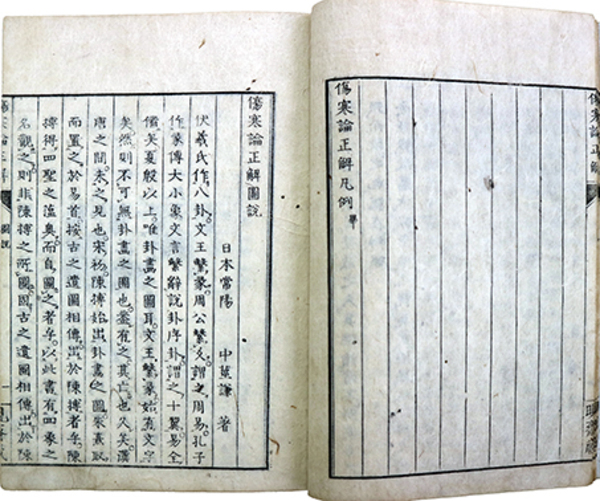 傷寒論正解
傷寒論正解凡例畢
傷寒論正解圖說
日本常陽 中莖謙 著
伏羲氏作八卦。文王繫彖。周公繫爻。謂之周易。孔子
作彖傳大小象文言繫辭說卦序卦。謂之十翼。易全
備矣。夏殷以上。唯卦畫之圖耳。文王繫彖。始有文字
矣。然則不可無卦畫之圖也。蓋有之。其亡也久矣。漢
唐之間。未之見也。宋初陳摶始出卦畫之圖。朱熹取
而置之於易首。按古之遺圖相傳。出於陳摶者乎。陳
摶得四聖之蘊奧。而自圖之者乎。以此書有四象之
名觀之。則非陳摶之所圖。固古之遺圖相傳。出於陳
傷寒論正解 圖說 一